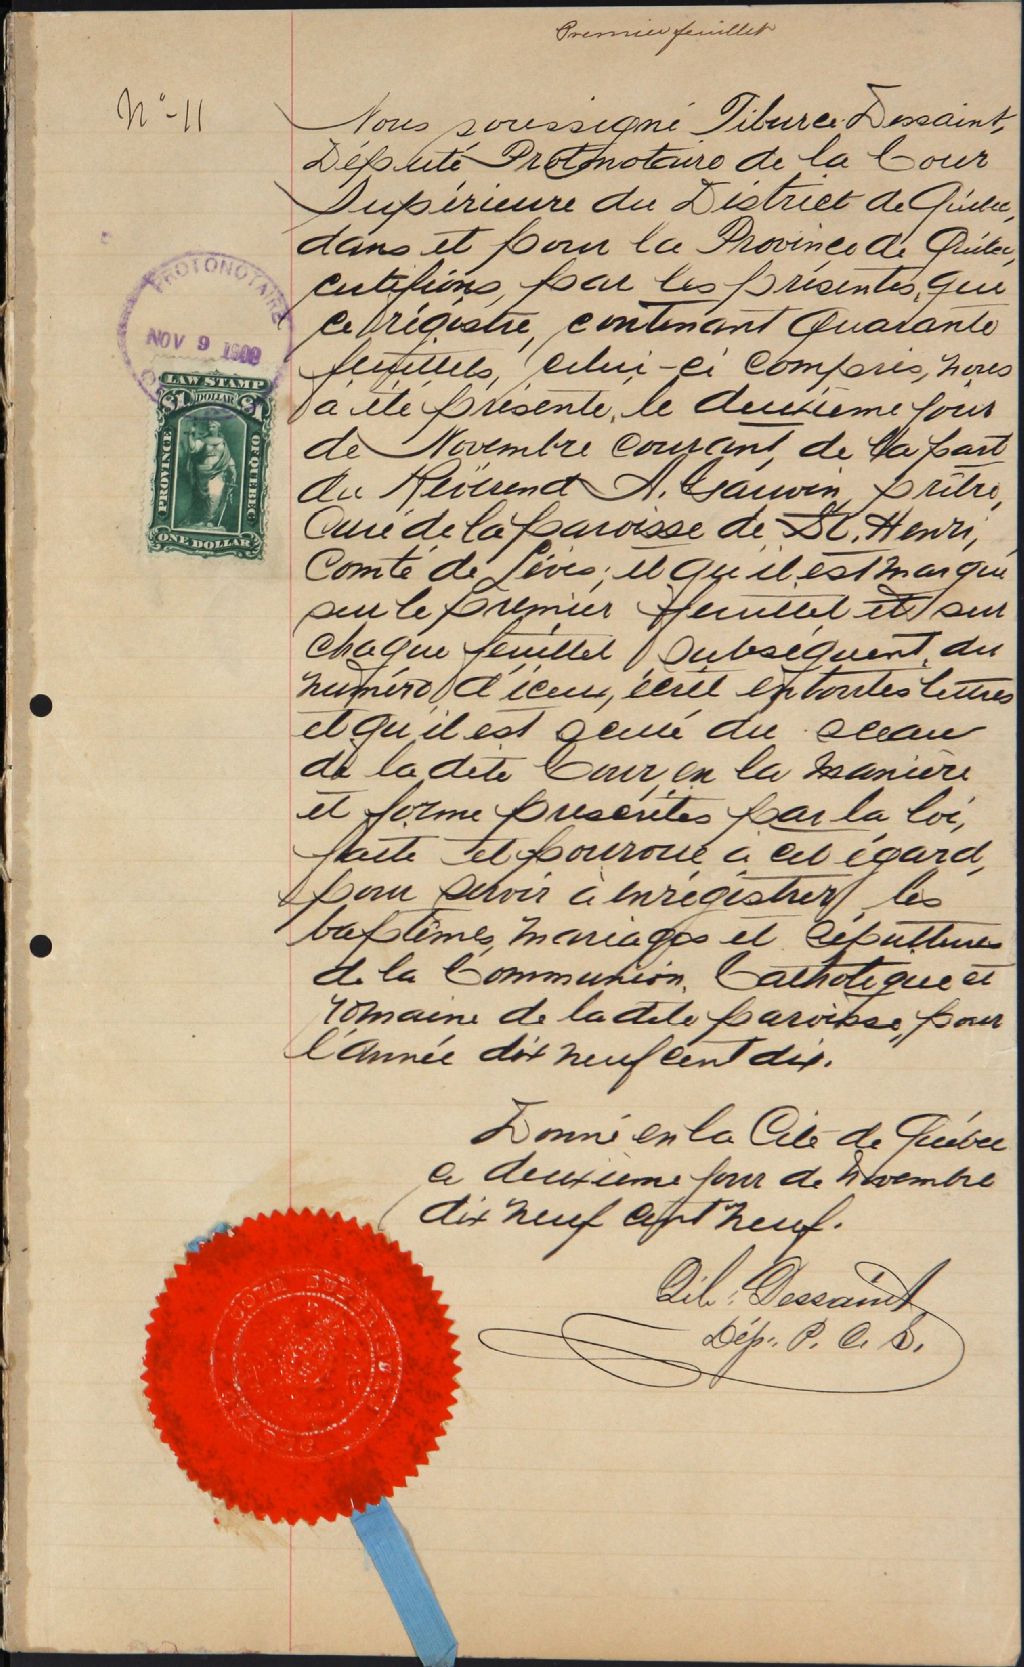 Premier feuillet
No-11
Nous soussigné Tiburce Dessaint,
Député Protonotaire de la Cour
Supérieure du District de Québec,
dans et pour la Province de Québec,
certifions, par les présentes, que
ce régistre, contenant Quarante
feuillets, celui-ci compris, nous
a été présenté, le deuxième jour
de Novembre courant, de la part
du Révérend A. Gauvin, prêtre,
Curé de la paroisse de St. Henri,
Comté de Lévis; et qu'il est marqué
sur le premier feuillet et sur
chaque feuillet subséquent, du
numéro d'iceux, écrit en toutes lettres
et qu'il est scellé du sceau
de la dite Cour, en la manière
et forme prescrites par la loi,
faite et pourvue à cet égard,
pour servir à enrégistrer les
baptêmes, mariages et sépultures
de la Communion Catholique et
romaine de la dite paroisse, pour
l'année dix neuf cent dix.
Donné en la Cité de Québec
ce deuxième jour de Novembre
dix neuf cent neuf.
Tib. Dessaint
Dép. P. C. S.
PROTONOTAIRE
NOV 9 1909
LAW STAMP
$1 DOLLAR $1
PROVINCE
OF QUEBEC
ONE DOLLAR